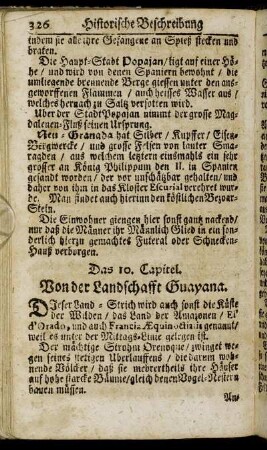 326 Historische Beschreibung
indem sie alle ihre Gefangene an Spieß stecken und
braten.
Die Haupt-Stadt Popajan/ ligt auf einer Hö-
he / und wird von denen Spaniern bewohnt / die
umliegende brennende Berge giessen unter den aus-
geworffenen Flammen / auch heisses Wasser aus/
welches hernach zu Saltz versotten wird.
Uber der Stadt Popajan nimmt der grosse Mag-
dalenen-Fluß seinen Ursprung.
Neu-Granada hat Silber / Kupffer / Eisen-
Bergwercke / und grosse Felsen von lauter Sma-
ragden / aus welchem letztern einsmahls ein sehr
grosser an König Philippum den II. in Spanien
gesandt worden / der vor unschätzbar gehalten / und
daher von ihm in das Kloster Escurial verehret wur-
de. Man findet auch hierinn den köstlichen Bezoar-
Stein.
Die Einwohner giengen hier sonst gantz nackend/
nur daß die Männer ihr Männlich Glied in ein son-
derlich hierzu gemachtes Futeral oder Schnecken-
Hauß verborgen.
Das 10. Capitel.
Von der Landschafft Guayana.
DIeser Land-Strich wird auch sonst die Küste
der Wilden / das Land der Amazonen / El
d'Orado, und auch Francia Æquinoctialis genannt/
weil es unter der Mittags-Linie gelegen ist.
Der mächtige Strohm Orenoque / zwinget we-
gen seines stetigen Uberlauffens / die darum woh-
nende Völcker / daß sie mehrertheils ihre Häuser
auf hohe starcke Bäume/ gleich denen Vogel-Nestern
bauen müssen.